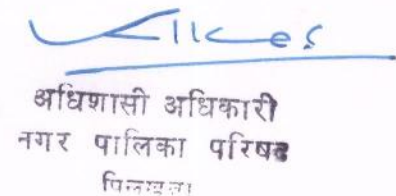 अधिशासी अधिकारी
नगर पालिका परिषद
पिलखुवा